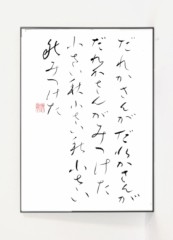 だれかさんがだれかさんが
だれかさんがみつけた
小さい秋小さい秋小さい
秋みつけた